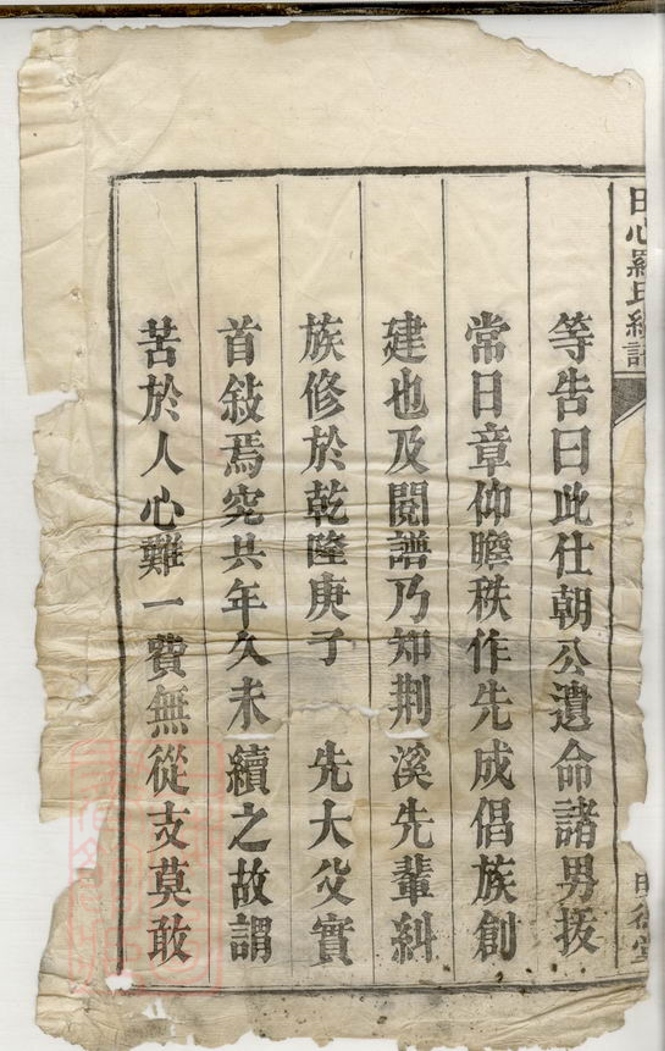 田心羅氏
等告曰此仕朝公遺命諸男援
常日章仰瞻秩作先成倡族創
建也及閱譜乃知荆溪先輩糾
族修於乾隆庚子 先大父實
首敍焉究其年久未續之故謂
苦於人心難一費無從支莫敢